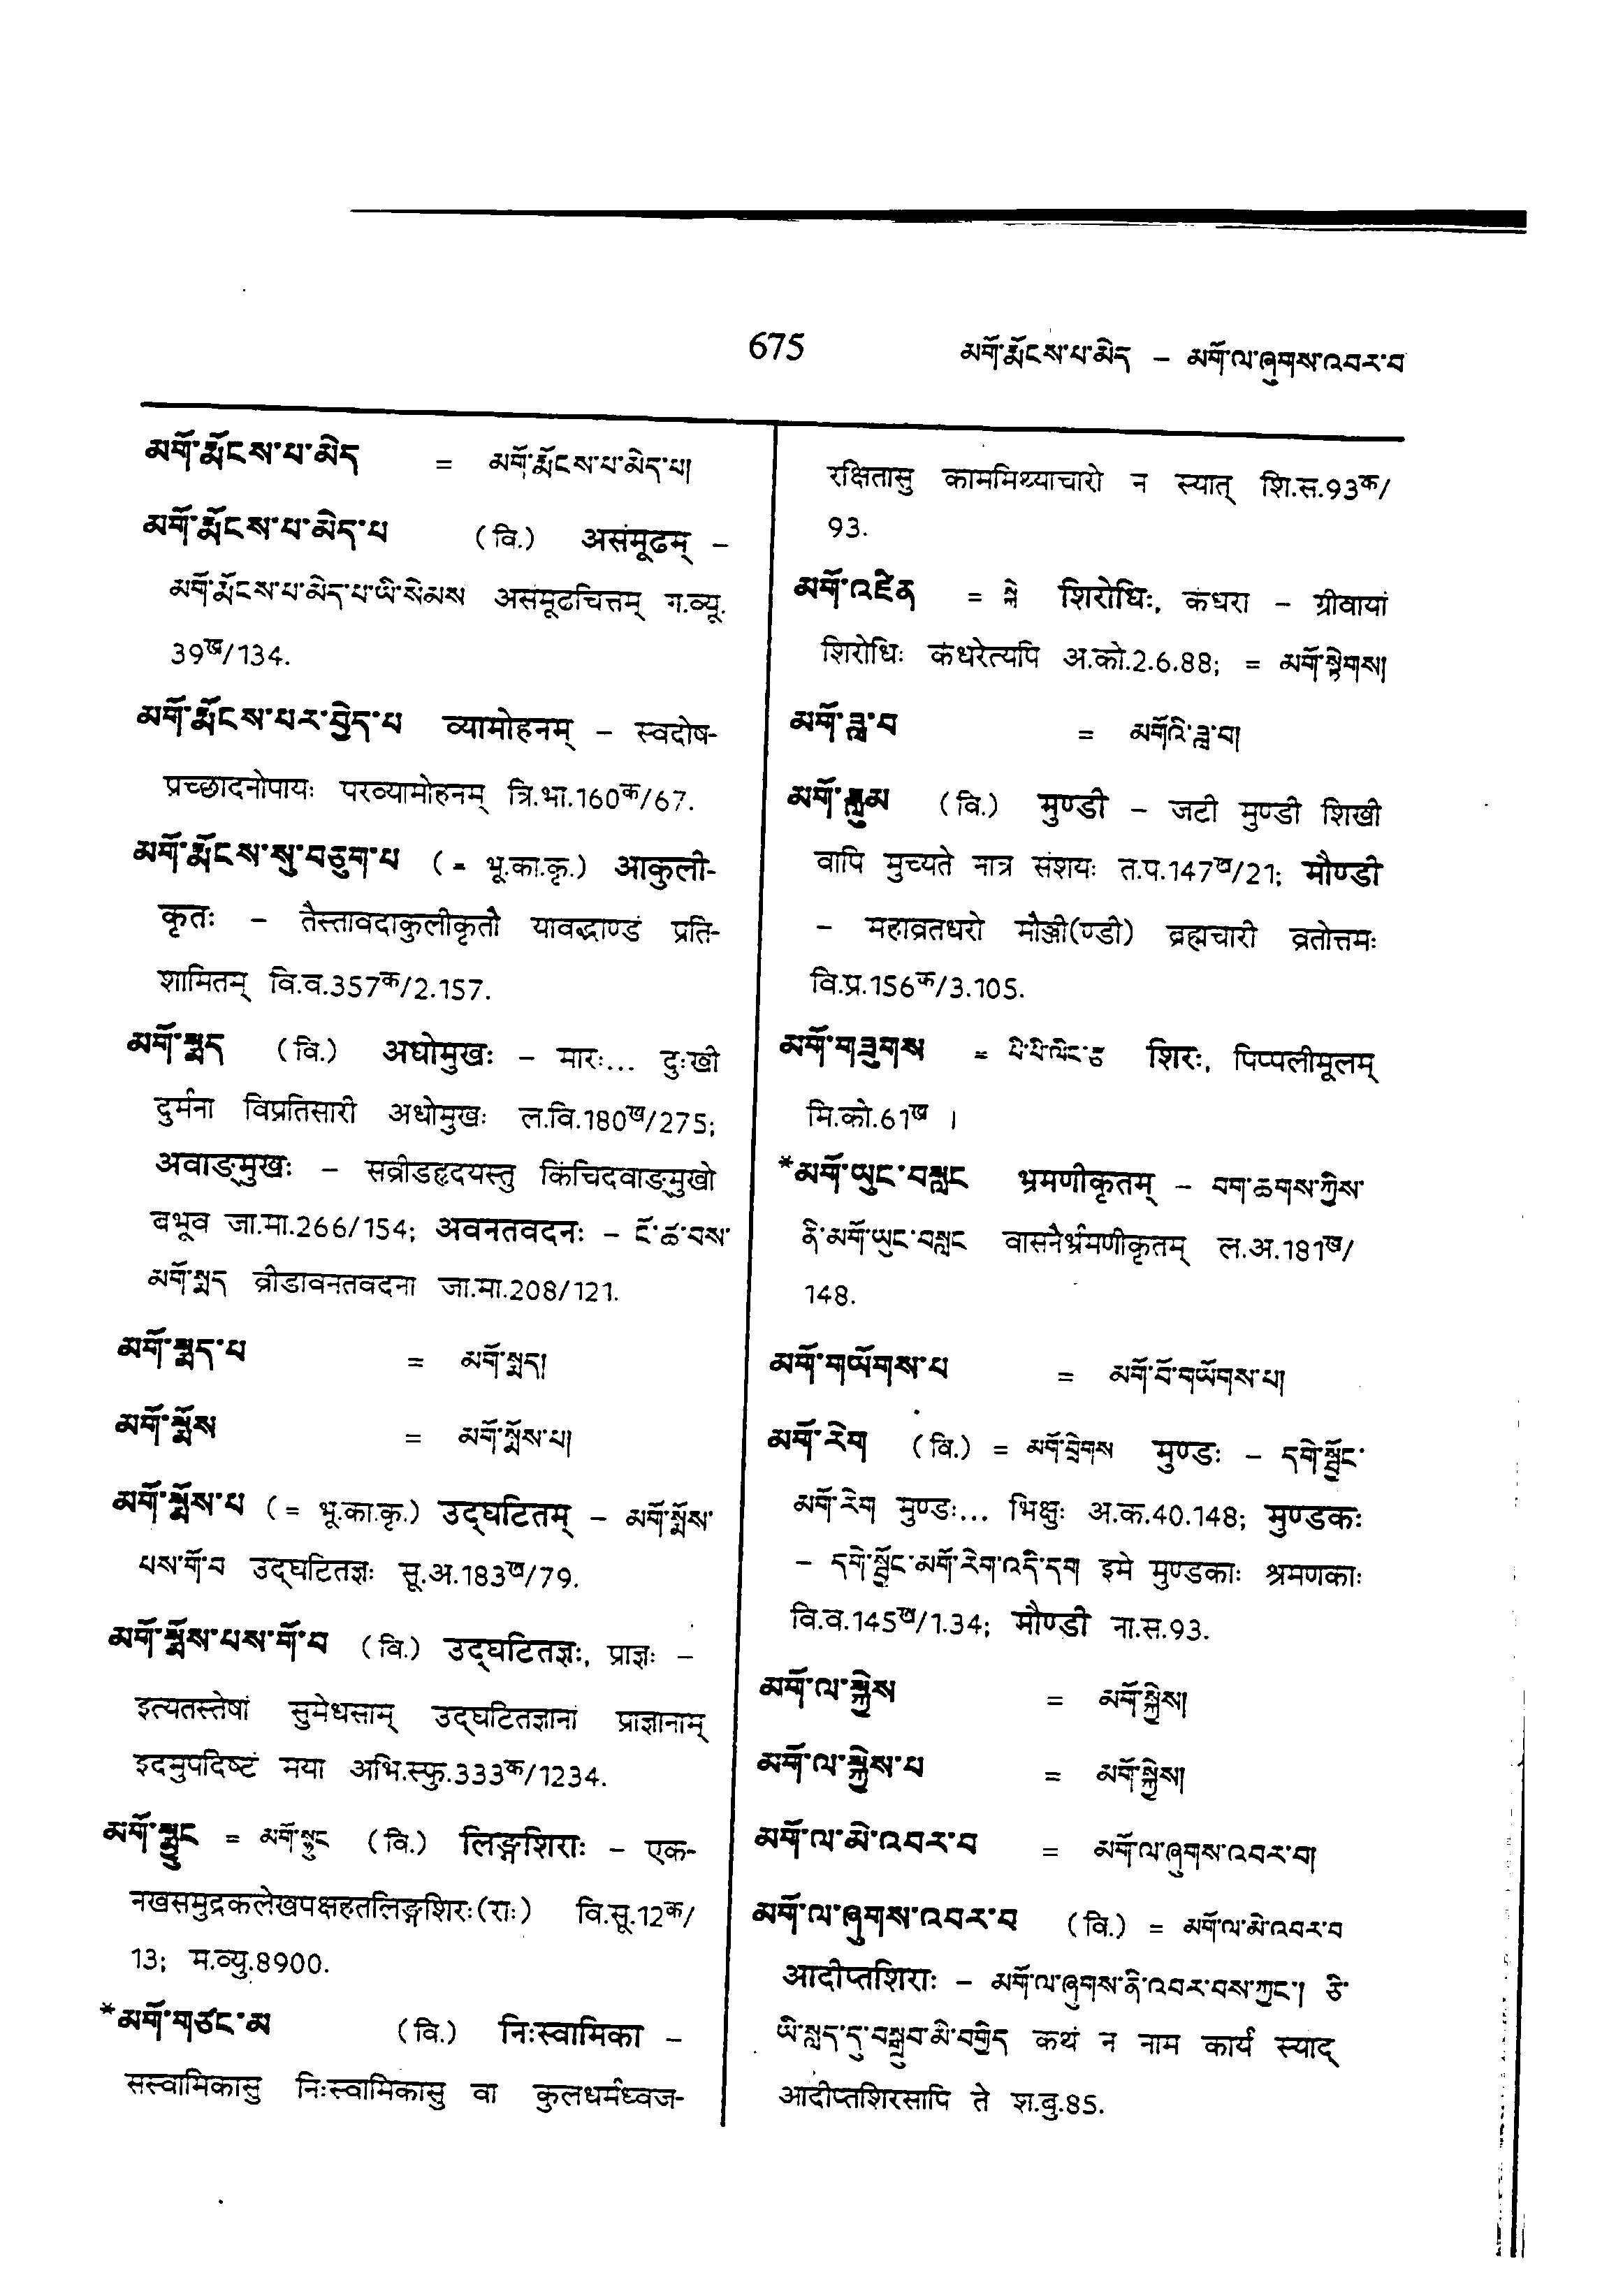 675 མགོ་རྨོངས་པ་མེད – མགོ་ལ་ཞུགས་འབར་བ
མགོ་རྨོངས་པ་མེད = མགོ་རྨོངས་པ་མེད་པ།
མགོ་རྨོངས་པ་མེད་པ (वि.) असंमूढम् –
མགོ་རྨོངས་པ་མེད་པ་ཡི་སེམས असंमूढचित्तम् ग.व्यू.
39ख/134.
མགོ་རྨོངས་པར་བྱེད་པ व्यामोहनम् – स्वदोष-
प्रच्छादनोपायः परव्यामोहनम् त्रि.भा.160क/67.
མགོ་རྨོངས་སུ་བཅུག་པ (= भू.का.कृ.) आकुली-
कृतः – तैस्तावदाकुलीकृतौ यावद्भाण्डं प्रति-
शामितम् वि.व.357क/2.157.
མགོ་སྨད (वि.) अधोमुखः – मारः... दुःखी
दुर्मना विप्रतिसारी अधोमुखः ल.वि.180ख/275;
अवाङ्मुखः – सव्रीडहृदयस्तु किंचिदवाङ्मुखो
बभूव जा.मा.266/154; अवनतवदनः – ངོ་ཚ་བས་
མགོ་སྨད व्रीडावनतवदना जा.मा.208/121.
མགོ་སྨད་པ = མགོ་སྨད།
མགོ་སྨོས = མགོ་སྨོས་པ།
མགོ་སྨོས་པ (= भू.का.कृ.) उद्घटितम् – མགོ་སྨོས་
པས་གོ་བ उद्घटितज्ञः सू.अ.183ख/79.
མགོ་སྨོས་པས་གོ་བ (वि.) उद्घटितज्ञः, प्राज्ञः –
इत्यतस्तेषां सुमेधसाम् उद्घटितज्ञानां प्राज्ञानाम्
इदमुपदिष्टं मया अभि.स्फु.333क/1234.
མགོ་སྨྲུང = མགོ་སྙུང (वि.) लिङ्गशिराः – एक-
नखसमुद्रकलेखपक्षहतलिङ्गशिरः(राः) वि.सू.12क/
13; म.व्यु.8900.
*མགོ་གཙང་མ (वि.) निःस्वामिका –
सस्वामिकासु निःस्वामिकासु वा कुलधर्मध्वज-
रक्षितासु काममिथ्याचारो न स्यात् शि.स.93क/
93.
མགོ་འཛིན = སྐེ शिरोधिः, कंधरा – ग्रीवायां
शिरोधिः कंधरेत्यपि अ.को.2.6.88; = མགོ་སྟེགས།
མགོ་ཟླ་བ = མགོའི་ཟླ་བ།
མགོ་ཟླུམ (वि.) मुण्डी – जटी मुण्डी शिखी
वापि मुच्यते नात्र संशयः त.प.147ख/21; मौण्डी
– महाव्रतधरो मौञ्जी(ण्डी) ब्रह्मचारी व्रतोत्तमः
वि.प्र.156क/3.105.
མགོ་གཟུགས = པི་པི་ལིང་རྩ शिरः, पिप्पलीमूलम्
मि.को.61ख ।
*མགོ་ཡུང་བསླང भ्रमणीकृतम् – བག་ཆགས་ཀྱིས་
ནི་མགོ་ཡུང་བསླང वासनैर्भ्रमणीकृतम् ल.अ.181ख/
148.
མགོ་གཡོགས་པ = མགོ་བོ་གཡོགས་པ།
མགོ་རེག (वि.) = མགོ་བྲེགས मुण्डः – དགེ་སློང་
མགོ་རེག मुण्डः... भिक्षुः अ.क.40.148; मुण्डकः
– དགེ་སྦྱོང་མགོ་རེག་འདི་དག इमे मुण्डकाः श्रमणकाः
वि.व.145ख/1.34; मौण्डी ना.स.93.
མགོ་ལ་སྐྱེས = མགོ་སྐྱེས།
མགོ་ལ་སྐྱེས་པ = མགོ་སྐྱེས།
མགོ་ལ་མེ་འབར་བ = མགོ་ལ་ཞུགས་འབར་བ།
མགོ་ལ་ཞུགས་འབར་བ (वि.) = མགོ་ལ་མེ་འབར་བ
आदीप्तशिराः – མགོ་ལ་ཞུགས་ནི་འབར་བས་ཀྱང་། ཅི་
ཡི་སླད་དུ་བསྒྲུབ་མི་བགྱིད कथं न नाम कार्यं स्याद्
आदीप्तशिरसापि ते श.बु.85.